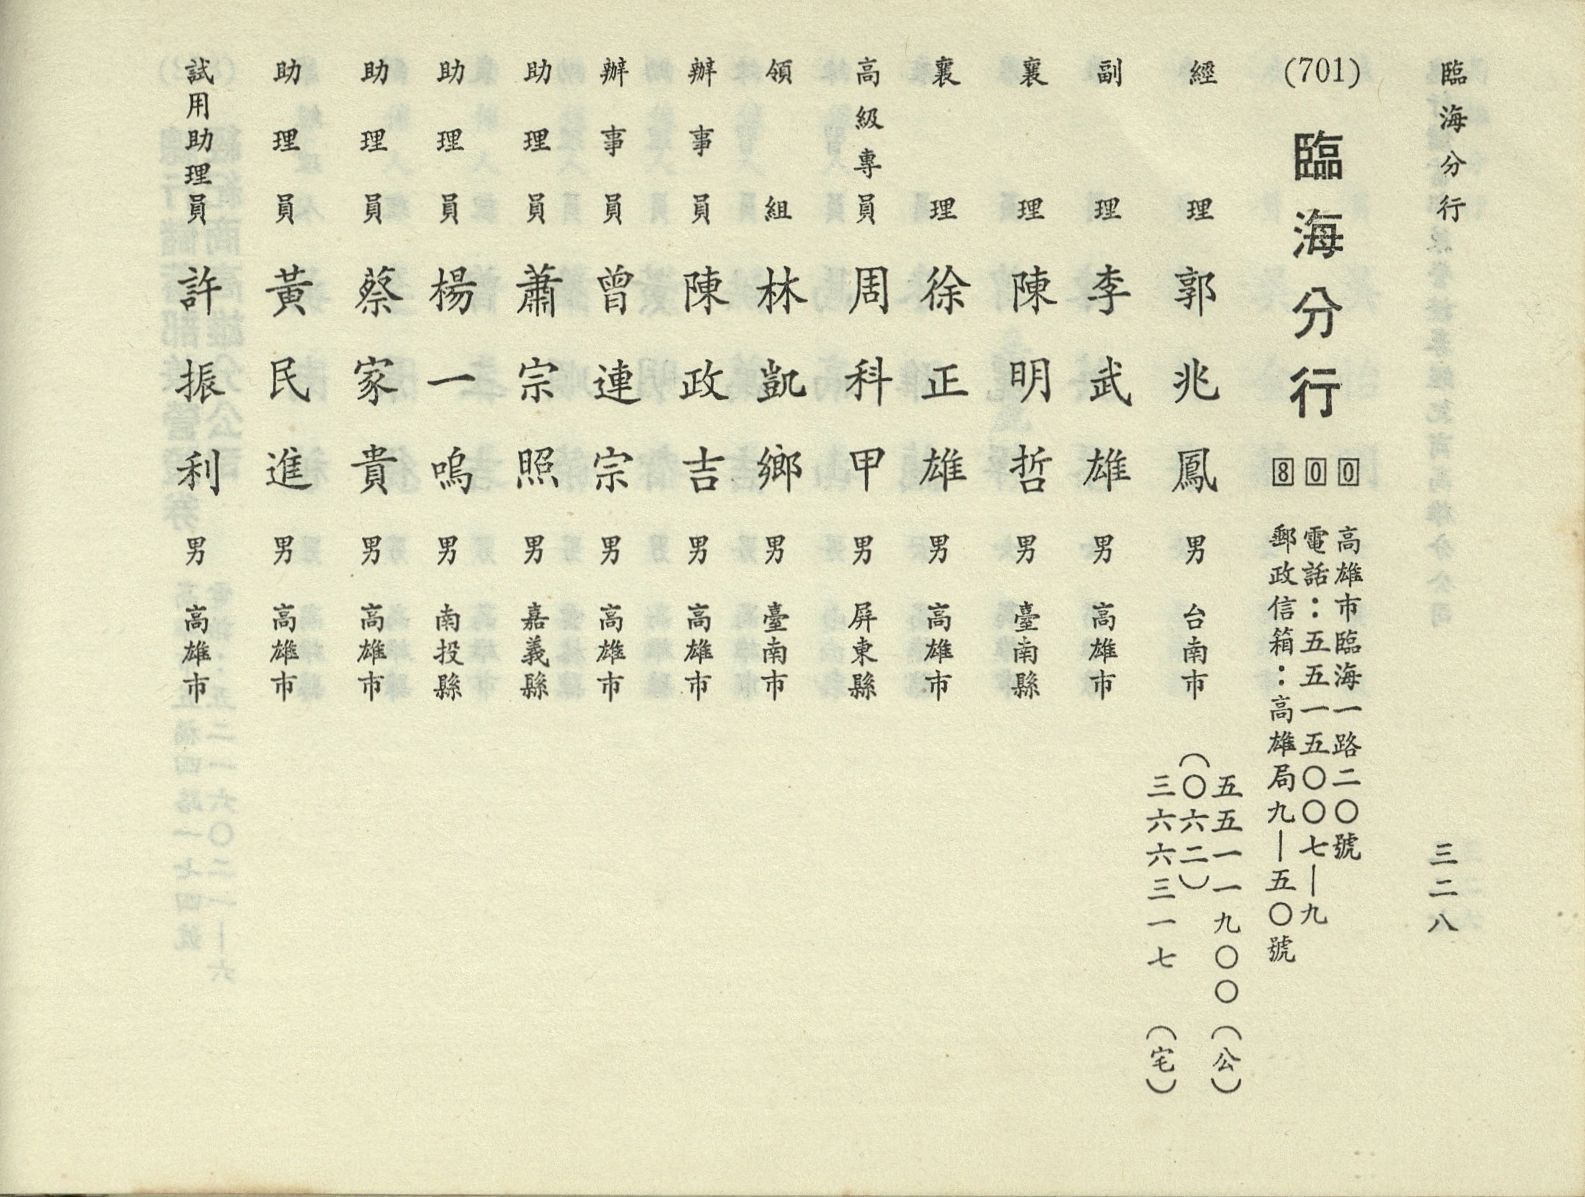 臨海分行 三二八
(701) 臨海分行
800
高雄市臨海一路二〇號
電話：五五一五〇〇七—九
郵政信箱：高雄局九—五〇號
經理 郭兆鳳 男 台南市
五五一一九〇〇（公）
（〇六二）
三六六三一七（宅）
副理 李武雄 男 高雄市
襄理 陳明哲 男 臺南縣
襄理 徐正雄 男 高雄市
高級專員 周科甲 男 屏東縣
領組 林凱鄉 男 臺南市
辦事員 陳政吉 男 高雄市
辦事員 曾連宗 男 高雄市
助理員 蕭宗照 男 嘉義縣
助理員 楊一鳴 男 南投縣
助理員 蔡家貴 男 高雄市
助理員 黃民進 男 高雄市
試用助理員 許振利 男 高雄市